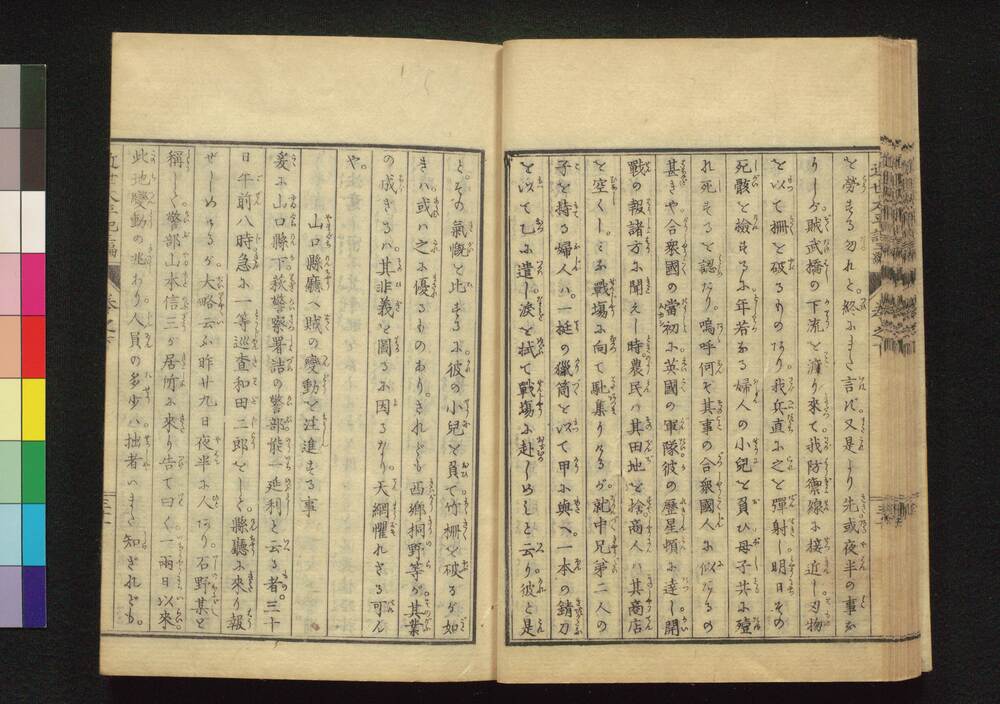 を勞する勿れと終にまた言ず又是より先或夜半の事な
りしが賊武橋の下流を渡り來て我防禦線に接近し刃物
を以て柵を破るものあり我兵直に之を彈射し明日その
死骸を檢するに年若なる婦人の小兒を負ひ母子共に殪
れ死せると認めたり嗚呼何ぞ其事の合衆國人に似たるの
甚きや合衆國の當初に英國の軍隊彼の歷星頓に達し開
戰の報諸方に聞えし時農民ハ其田地を捨商人ハ其商店
を空くしミな戰塲に向て馳集りけるが就中兄第二人の
子を持る婦人ハ一挺の獵筒を以て甲に與へ一本の錆刀
を以て乙に遣し淚を拭て戰塲に赴しめしと云り彼と是
と其の氣慨を比するに彼の小兒を負て竹柵を破るが如
きハ或ハ之に優るものあり。されども西鄕桐野等が其業
の成ざるハ。其非義を圖るに因るなり。天網懼れざる可ん
や。
山口縣廳へ賊の變動を注進する事
爰に山口縣下萩警察署詰の警部熊一延利と云る者。三十
日午前八時急に一等巡査和田二郎をして。縣廳に來り報
ぜしめけるが大略云ふ昨廿九日夜半に人あり石野某と
稱して警部山本信三が居所に來り告て曰く。一兩日以來。
此地變動の兆あり人員の多少ハ拙者いまた知ざれども。